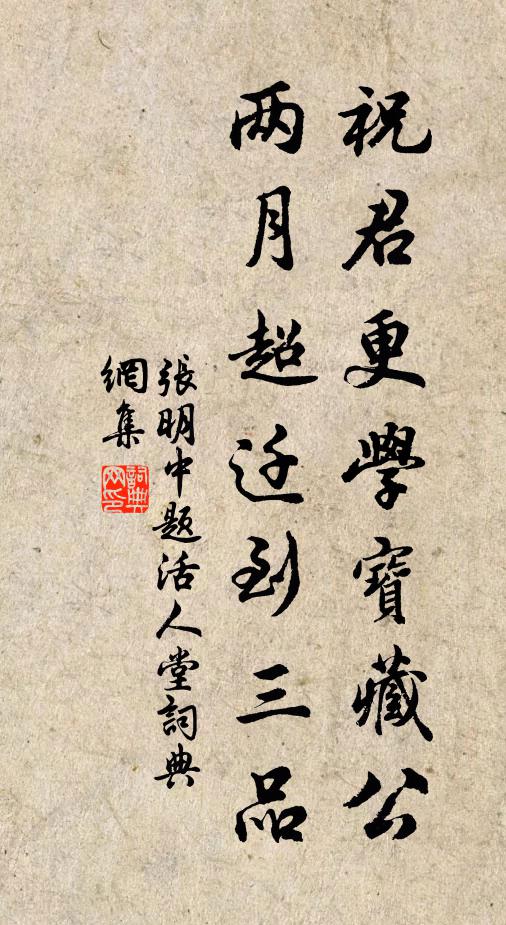 祝君更學寶藏公
两月超迁到三品
張明中題活人堂詞典
網集
詞典
网印